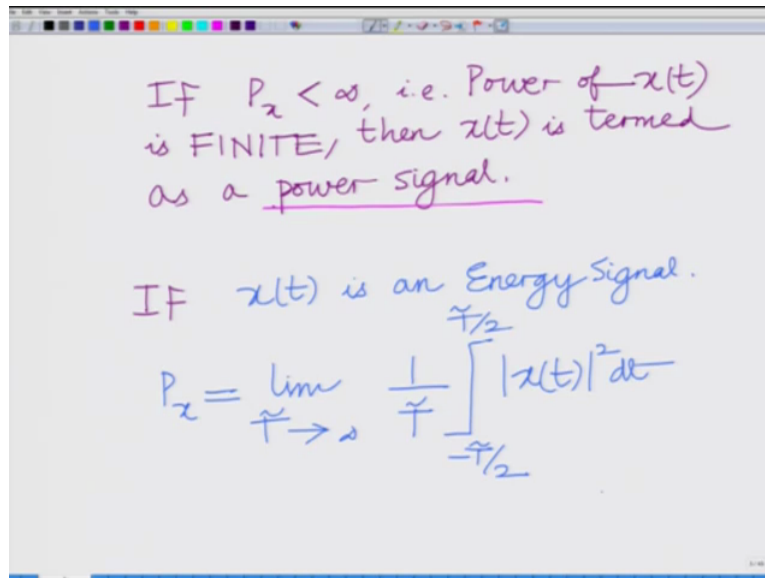 IF Pₓ < ∞, i.e. Power of x(t)
is FINITE, then x(t) is termed
as a power signal.
IF x(t) is an Energy Signal.
Pₓ = lim_{T̃ → ∞} 1/T̃ ∫_{-T̃/2}^{T̃/2} |x(t)|² dt